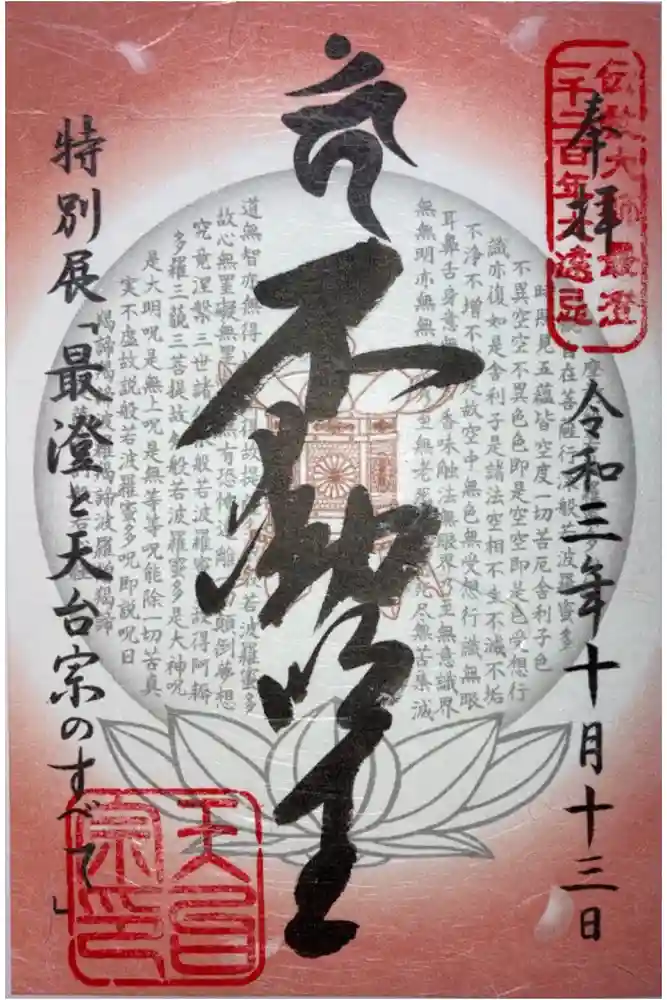 伝教大師最澄
一千二百年大遠忌
奉拝
令和三年十月十三日
自在菩薩行深般若波羅蜜多
時照見五蘊皆空度一切苦厄舍利子色
不異空空不異色色即是空空即是色受想行
識亦復如是舍利子是諸法空相不生不滅不垢
不浄不増不 故空中無色無受想行識無眼
耳鼻舌身意無 香味触法無眼界乃至無意識界
無無明亦無無 至無老死 尽無苦集滅
不動明王
道無智亦無得以 得故菩提 般若波羅蜜多
故心無罣礙無罣 無有恐怖遠離 顛倒夢想
究竟涅槃三世諸仏 般若波羅蜜 故得阿耨
多羅三藐三菩提故知般若波羅蜜多是大神呪
是大明呪是無上呪是無等等呪能除一切苦真
実不虚故説般若波羅蜜多呪即説呪日
羯諦羯諦波羅羯諦波羅僧羯諦
特別展「最澄と天台宗のすべて」
天台
宗印